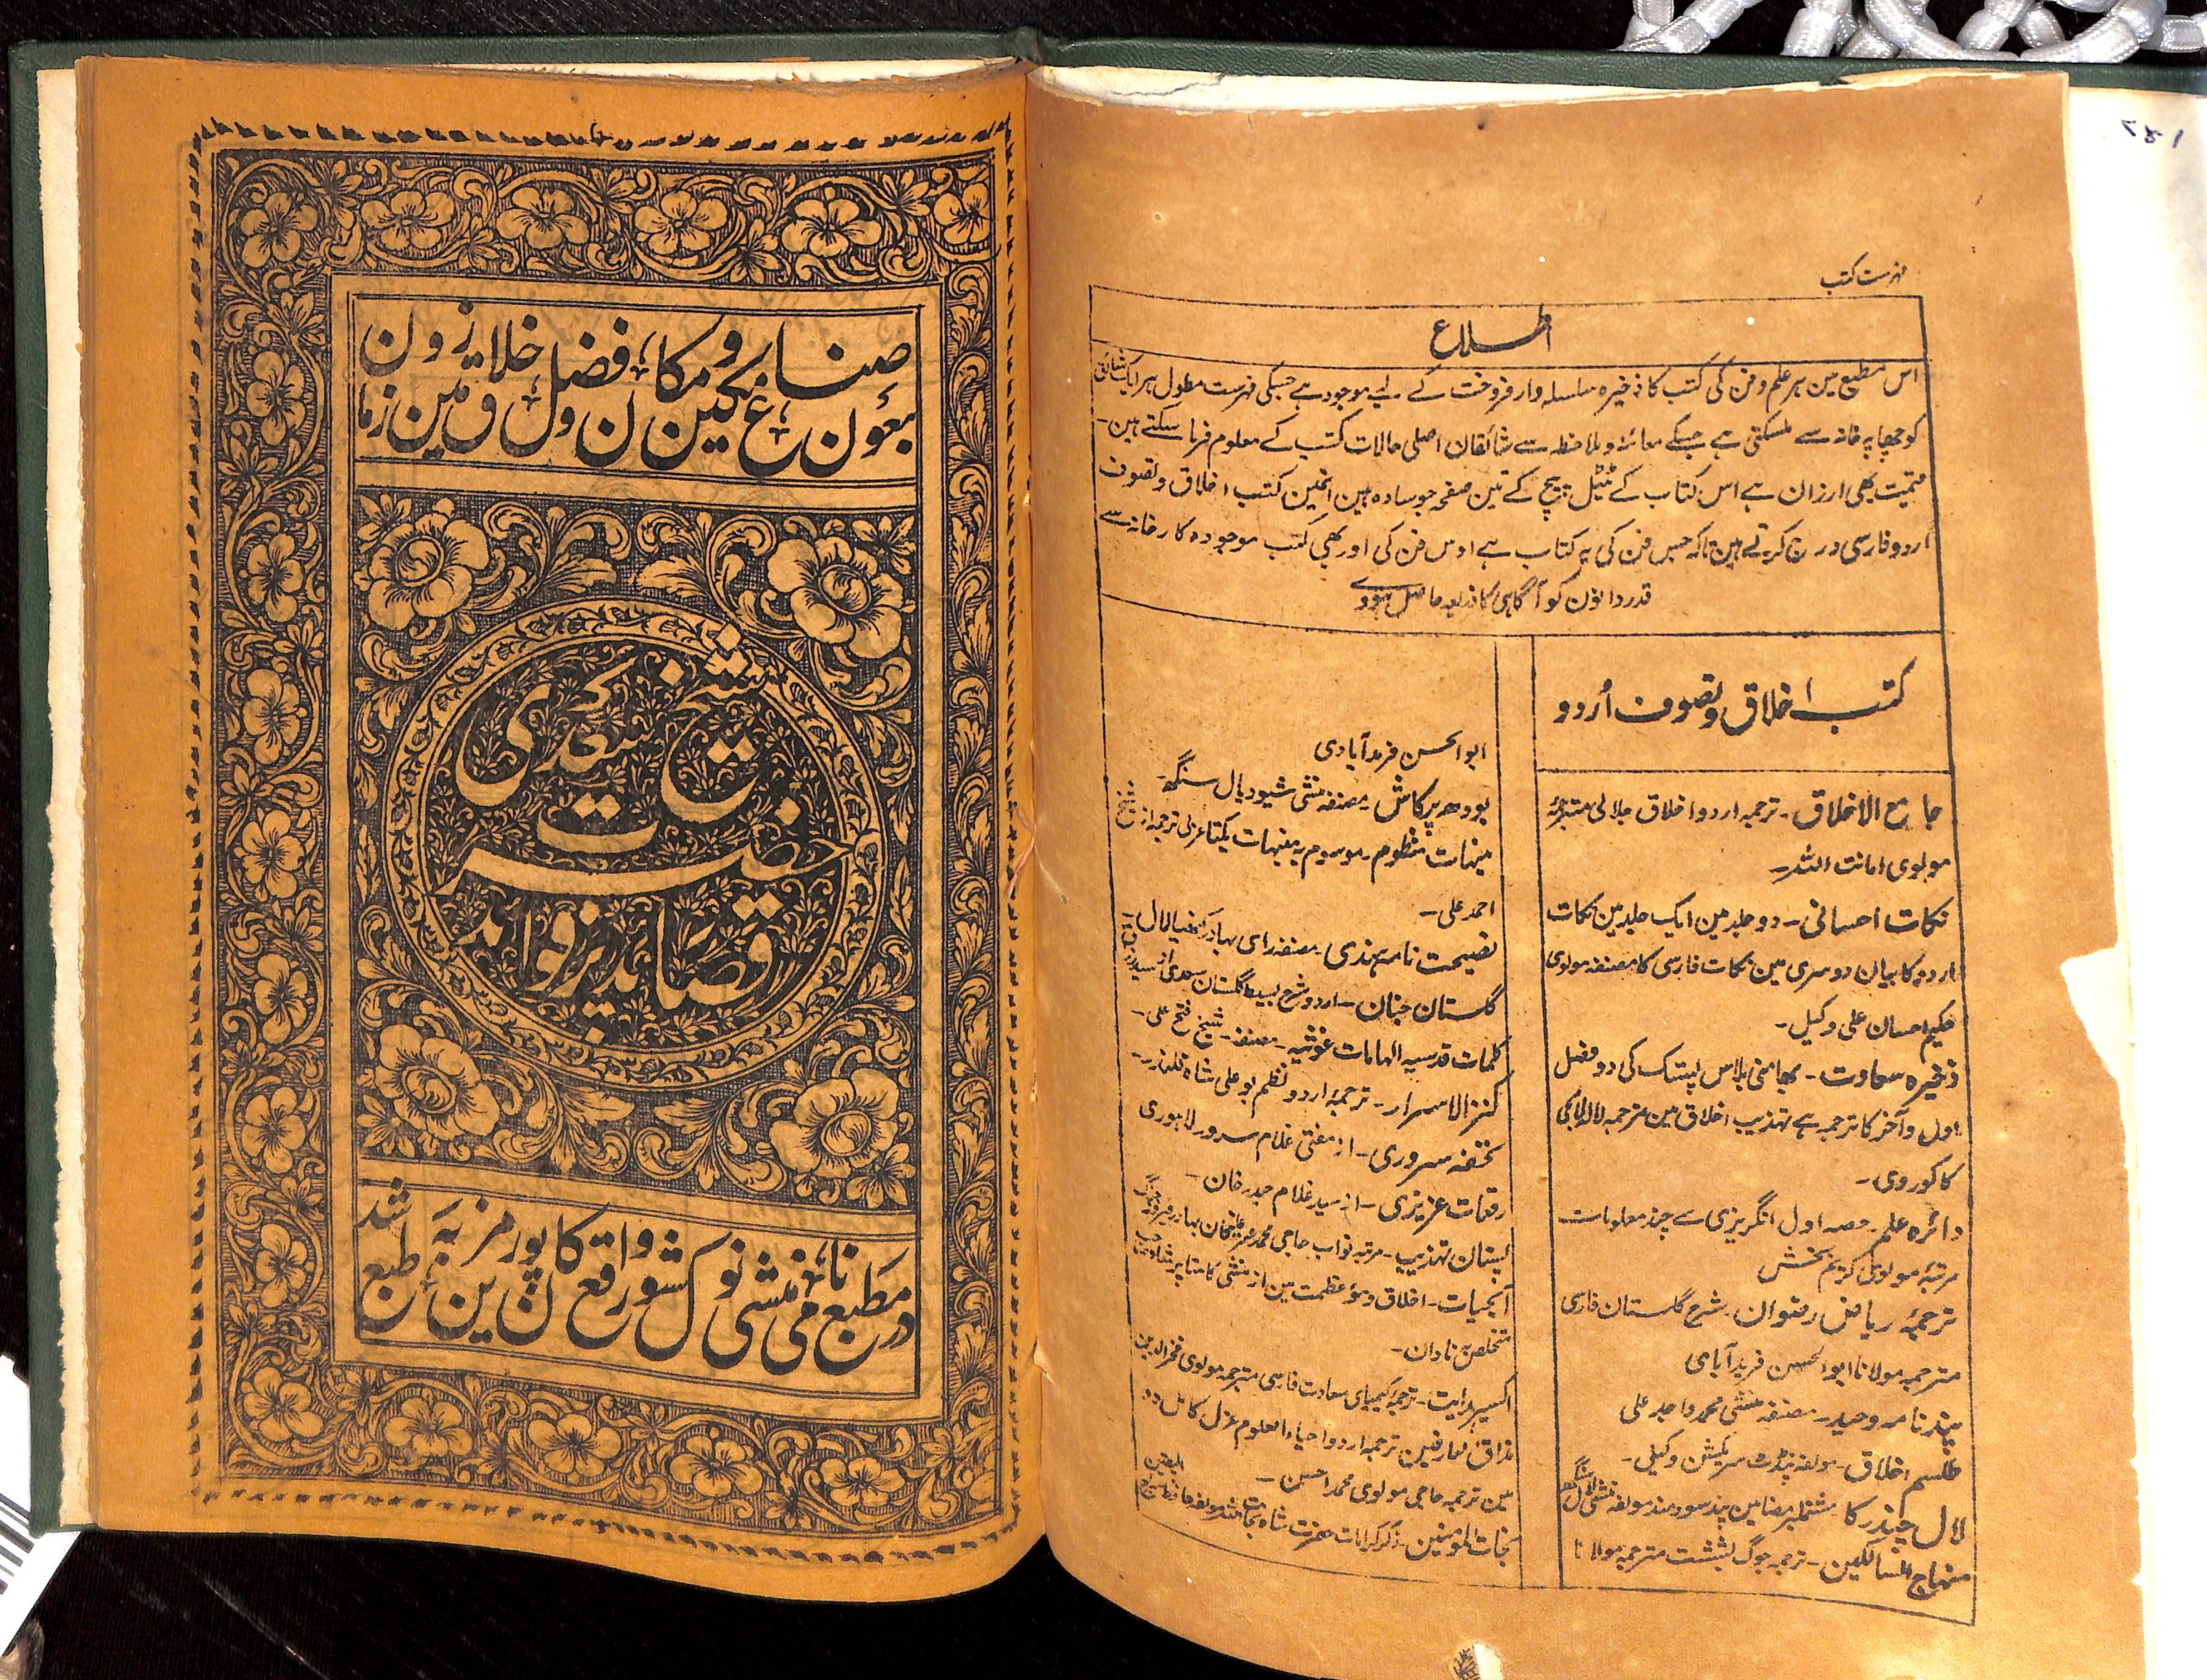 ۲۵۱
فہرست کتب
اطلاع
اس مطبع مین ہر علم و فن کی کتب کا ذخیرہ سلسلہ وار فروخت کے لیے موجود ہے جسکی فہرست مطول ہر ایک شائق
کو چھاپہ خانہ سے ملسکتی ہے جسکے معائنہ و ملاحظہ سے شائقان اصلی حالات کتب کے معلوم فرما سکتے ہین۔
قیمت بھی ارزان ہے اس کتاب کے ٹیٹل پیج کے تین صفحہ جو سادہ ہین انمین کتب اخلاق و تصوف
اردو فارسی درج کرتے ہین تاکہ جس فن کی یہ کتاب ہے اوس فن کی اور بھی کتب موجودہ کارخانہ سے
قدردانون کو آگاہی کا ذریعہ حاصل ہووے
کتب اخلاق و تصوف اُردو
جامع الاخلاق۔ ترجمہ اردو اخلاق جلالی مترجمہٴ
مولوی امانت اللہ۔
نکات احسانی۔ دو جلد مین ایک جلد مین نکات
اردو کا بیان دوسری مین نکات فارسی کا مصنفہ مولوی
حکیم احسان علی وکیل۔
ذخیرہ سعادت۔ بھامنی بلاس پستک کی دو فصل
اول و آخر کا ترجمہ ہے تہذیب اخلاق مین مترجمہ لالہ لالجی
کاکوروی۔
دائرہ علم۔ حصہ اول انگریزی سے چند معلومات
مرتبہٴ مولوی کریم بخش
ترجمہٴ ریاض رضوان۔ شرح گلستان فارسی
مترجمہ مولانا ابو الحسن فریدآبادی
پندنامہ وحید۔ مصنفہ منشی محمد واجد علی
طلسم اخلاق۔ مولفہ پنڈت سریکشن وکیل۔
لال چندر کا۔ مشتملبر مضامین پند سودمند مولفہ منشی لال سنگھ
منہاج السالکین۔ ترجمہ جوگ بششت مترجمہ مولانا
ابو الحسن فریدآبادی
بودھ پرکاش۔ مصنفہ منشی شیو دیال سنگھ۔
منبہات منظوم۔ موسوم بہ منبہات یکتا عربی ترجمہ از شیخ
احمد علی۔
نصیحت نامہ ہندی۔ مصنفہ رای بہادر کنھیا لال۔
گلستان جنان۔ اردو شرح بسیط گلستان سعدی از سید
کلمات قدسیہ الہامات غوثیہ۔ مصنفہ شیخ فتح علی۔
کنز الاسرار۔ ترجمہٴ اردو نظم بو علی شاہ قلندر۔
تحفہ سروری۔ از مفتی غلام سرور لاہوری
رقعات عزیزی۔ از سید غلام حیدر خان۔
لبستان تہذیب۔ مرتبہ نواب حاجی محمد عمر علیخان بہادر فیروز جنگ
آبحیات۔ اخلاق و موعظمت مین از منشی کامتا پرشاد صاحب
متخلص بہ نادان۔
اکسیر ہدایت۔ ترجمہٴ کیمیای سعادت فارسی مترجمہ مولوی فخر الدین
مذاق العارفین ترجمہ اردو احیاء العلوم عربی کامل دو
مین ترجمہ حاجی مولوی محمد احسن۔
نجات المومنین۔ ذکر کرامات حضرت شاہ
بعون صناع مکین و مکان و فضل خلاق زمین و زمن
شیخ سعدی
حضرت
قصائد
در مطبع نامی منشی نولکشور واقع کانپور مزین بہ طبع شد